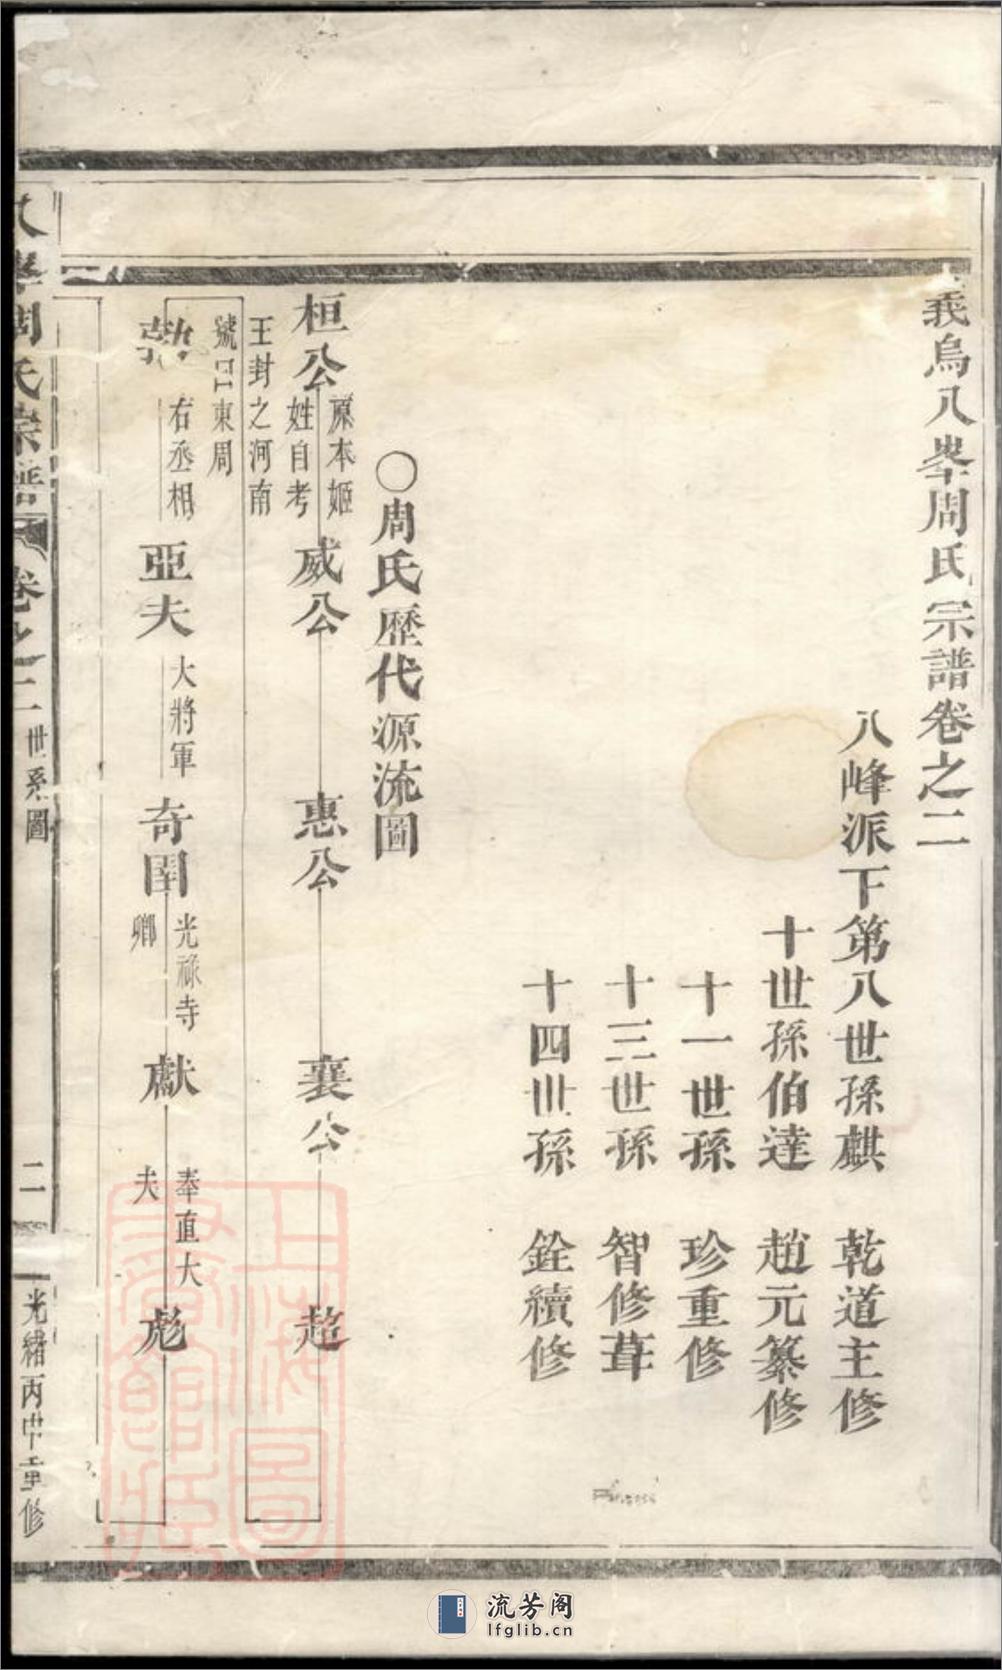 義烏八峯周氏宗譜卷之二
八峰派下第八世孫麒 乾道主修
十世孫伯達 趙元纂修
十一世孫 珍重修
十三世孫 智修葺
十四世孫 銓續修
〇周氏歷代源流圖
桓公 原本姬姓自考王封之河南號曰東周 威公 惠公 襄公 超
勃 右丞相 亞夫 大將軍 奇圉 光祿寺卿 獻 奉直大夫 彪
八峯周氏宗譜 卷之二 世系圖 二 光緒丙申重修
上海圖書館藏
流芳阁
lfglib.cn